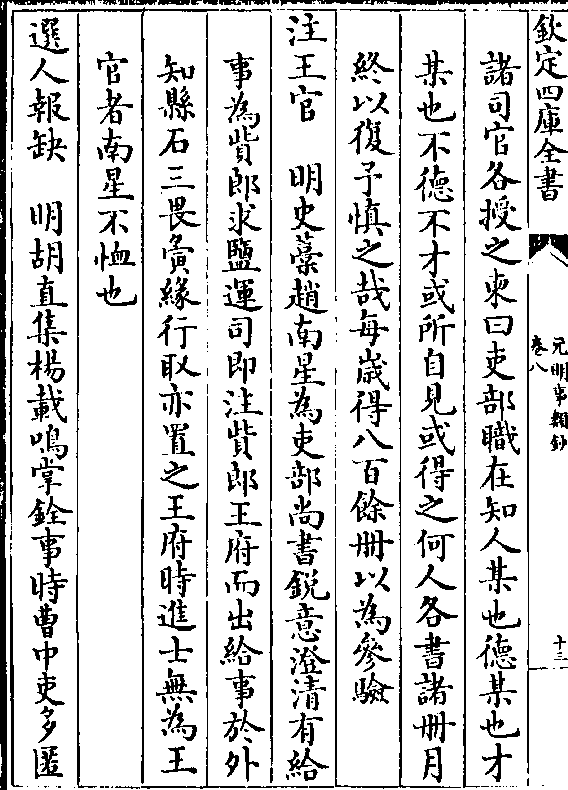 欽定四庫全書
元明事類鈔
卷八
十三
諸司官各授之柬曰吏部職在知人某也德某也才
某也不德不才或所自見或得之何人各書諸冊月
終以復予慎之哉每歳得八百餘冊以為參驗
注王官　明史藁趙南星為吏部尚書鋭意澄清有給
事為貲郎求鹽運司即注貲郎王府而出給事於外
知縣石三畏夤緣行取亦置之王府時進士無為王
官者南星不恤也
選人報缺　明胡直集楊載鳴掌銓事時曹中吏多匿